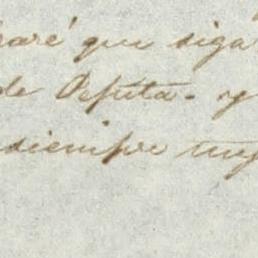 raré que siga
de Pepita. y
siempre muy